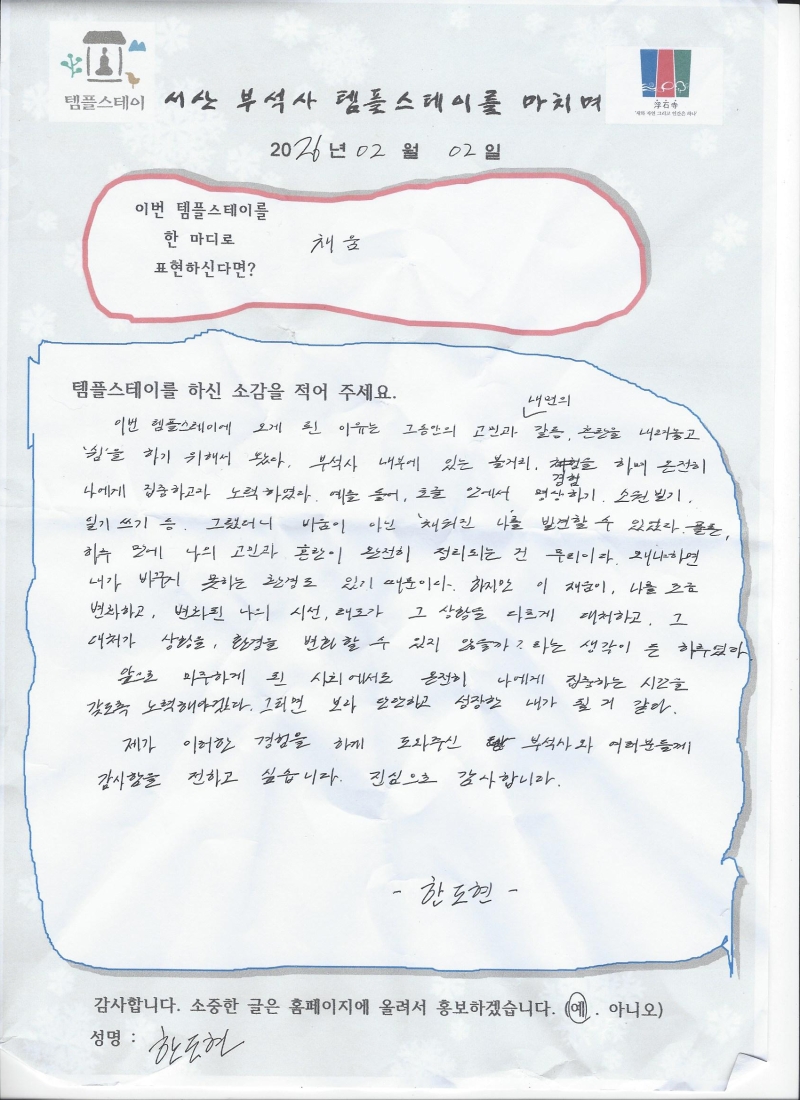 템플스테이
서산 부석사 템플스테이를 마치며
浮石寺
2026년 02월 02일
이번 템플스테이를
한 마디로
표현하신다면?
채움
템플스테이를 하신 소감을 적어 주세요.
내면의
이번 템플스테이에 오게 된 이유는 그동안의 고민과 갈등, 혼란을 내려놓고
'쉼'을 하기 위해서 왔다. 부석사 내부에 있는 볼거리, 체험을 하며 온전히
경험
나에게 집중하고자 노력하였다. 예를 들어, 호흡 안에서 명상하기, 소원 빌기,
일기 쓰기 등. 그랬더니 비움이 아닌 '채워진 나'를 발견할 수 있었다. 물론,
하루 만에 나의 고민과 혼란이 완전히 정리되는 건 무리이다. 왜냐하면
내가 바꾸지 못하는 환경도 있기 때문이다. 하지만 이 채움이, 나를 조금
변화하고, 변화된 나의 시선, 태도가 그 상황을 다르게 대처하고, 그
대처가 상황을, 환경을 변화할 수 있지 않을까? 라는 생각이 든 하루였다.
앞으로 마주하게 될 사회에서도 온전히 나에게 집중하는 시간을
갖도록 노력해야겠다. 그러면 보다 단단하고 성장한 내가 될 거 같아.
제가 이러한 경험을 하게 도와주신 부석사와 여러분들께
감사함을 전하고 싶습니다. 진심으로 감사합니다.
- 한도현 -
감사합니다. 소중한 글은 홈페이지에 올려서 홍보하겠습니다. (예 . 아니오)
성명 : 한도현